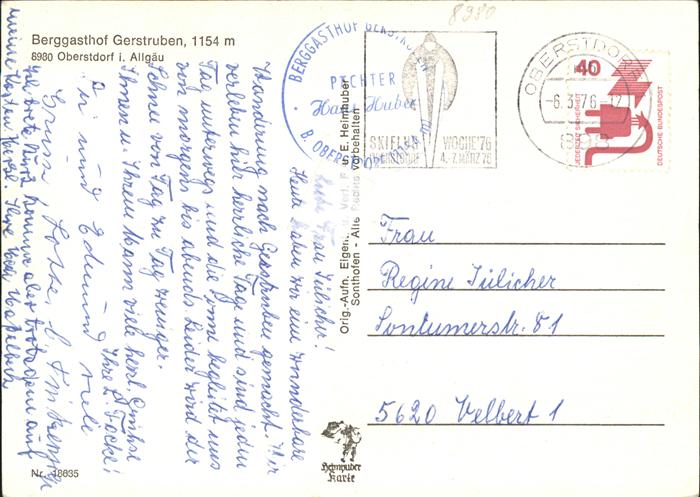 Berggasthof Gerstruben, 1154 m
8980 Oberstdorf i. Allgäu
8980
BERGGASTHOF GERSTRUBEN
PÄCHTER
Hans Huber
B. OBERSTDORF
SKIFLUG WOCHE '76
OBERSTDORF 4.-7. MÄRZ 76
OBERSTDORF
-6.3.76.-12
8980
40
JEDERZEIT SICHERHEIT
DEUTSCHE BUNDESPOST
Liebe Frau Jülicher!
Heute haben wir eine wunderbare
Wanderung nach Gerstruben gemacht. Wir
verleben hier herrliche Tage und sind jeden
Tag unterwegs und die Sonne begleitet uns
von morgens bis abends. Leider wird der
Schnee von Tag zu Tag weniger.
Ihnen u. Ihrem Mann viele herzl. Grüße
Ihre
und Edmund
Frau
Regine Jülicher
Sontumerstr. 81
5620 Velbert 1
Orig.-Aufn. Eigent. u. Verl. F. u. E. Heimhuber
Sonthofen - Alle Rechte vorbehalten
Heimhuber
Karte
Nr. 18635